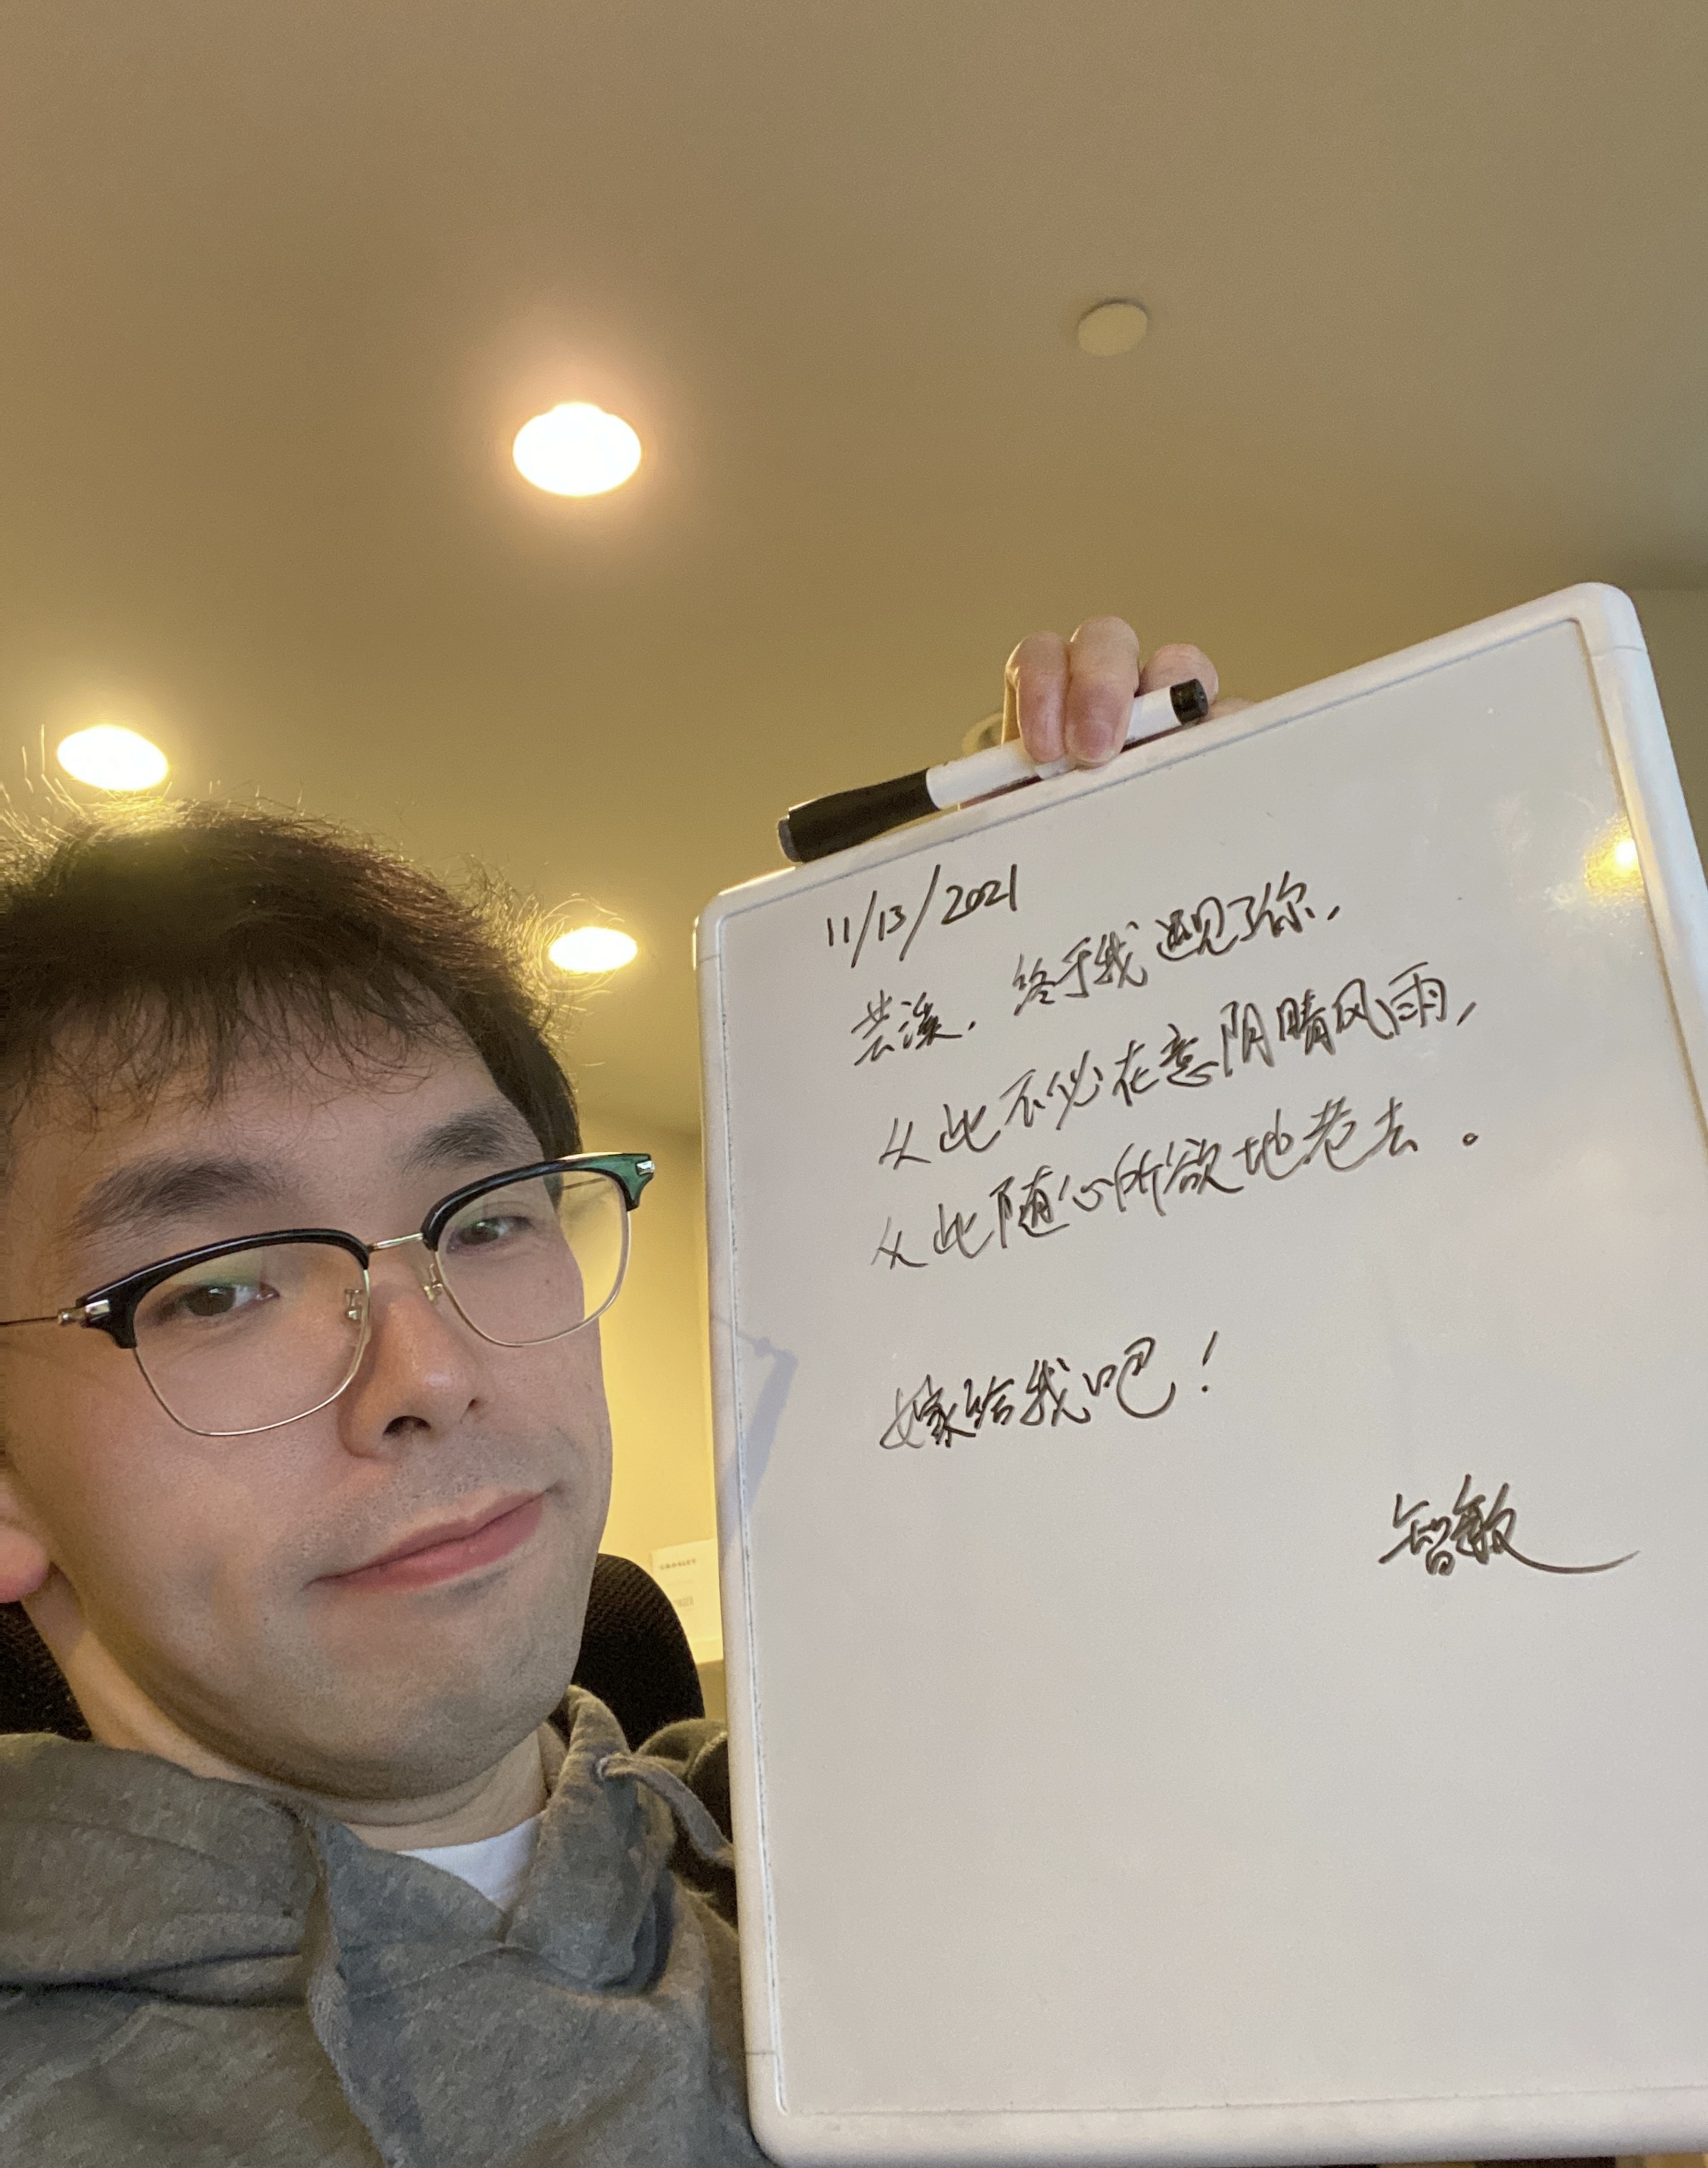 11/13/2021
芸溪，终于我遇见了你，
从此不必在意阴晴风雨，
从此随心所欲地老去。
嫁给我吧！
智敏
CROSLEY